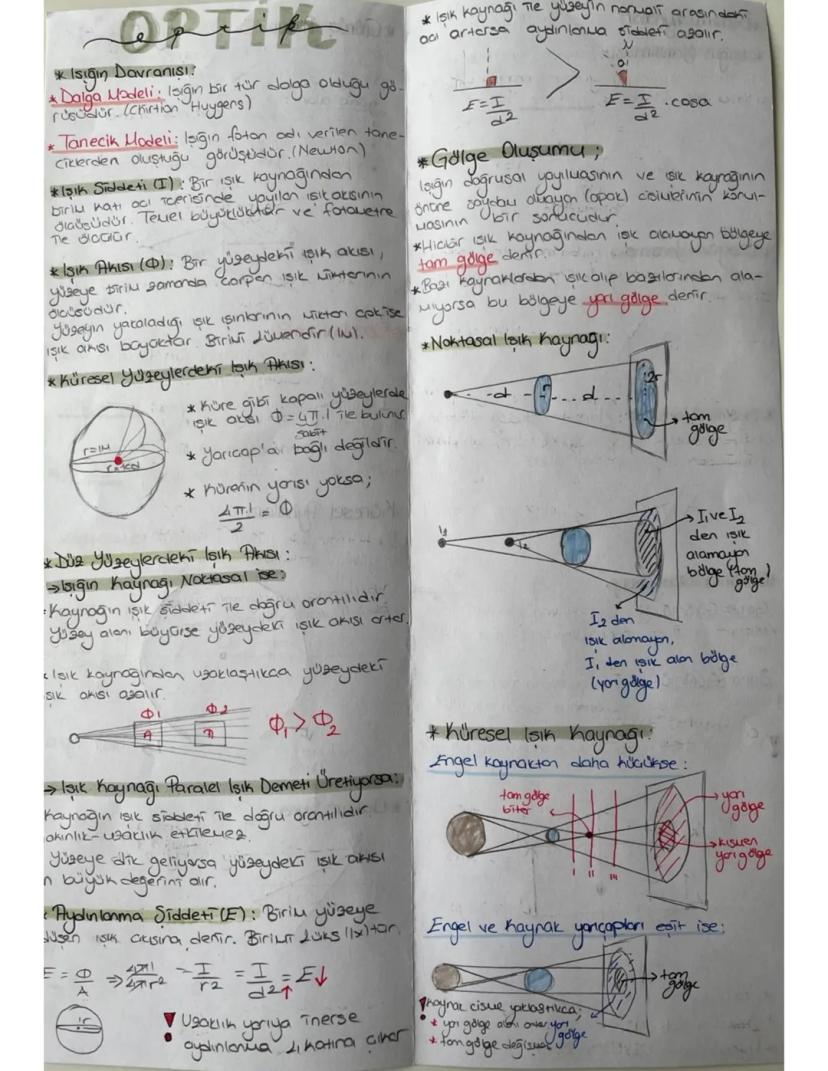 OPTİK
optik
* Işığın Davranışı:
* Dalga Modeli: Işığın bir tür dalga olduğu gö-
rüşüdür. (Chirtian Huygens)
* Tanecik Modeli: Işığın foton adı verilen tane-
ciklerden oluştuğu görüşüdür. (Newton)
* Işık Şiddeti (I): Bir ışık kaynağından
birim katı açı içerisinde yayılan ışık akısının
ölçüsüdür. Temel büyüklüktür ve fotometre
ile ölçülür.
* Işık Akısı (Φ): Bir yüzeydeki ışık akısı,
yüzeye birim zamanda çarpan ışık miktarının
ölçüsüdür.
Yüzeyin yakaladığı ışık ışınlarının miktarı çok ise
ışık akısı büyüktür. Birimi lümendir (lm).
* Küresel Yüzeylerdeki Işık Akısı:
* Küre gibi kapalı yüzeylerde
ışık akısı Φ=4π.I ile bulunur.
sabit
* Yarıçap'a bağlı değildir.
* Kürenin yarısı yoksa;
4π.I/2 = Φ
r=1m
* Düz Yüzeylerdeki Işık Akısı:
→ Işığın Kaynağı Noktasal ise:
Kaynağın ışık şiddeti ile doğru orantılıdır
Yüzey alanı büyürse yüzeydeki ışık akısı artar.
Işık kaynağından uzaklaştıkça yüzeydeki
ışık akısı azalır.
Φ1 Φ2
A A
Φ1 > Φ2
→ Işık Kaynağı Paralel Işık Demeti Üretiyorsa:
Kaynağın ışık şiddeti ile doğru orantılıdır
akınlık-uzaklık etkilemez.
Yüzeye dik geliyorsa yüzeydeki ışık akısı
n büyük değerini alır.
Aydınlanma Şiddeti (E): Birim yüzeye
düşen ışık akısına denir. Birimi lüks (lx)tür.
E = Φ/A ⇒ 4πI/4πr2 = I/r2 = I/d2↑ = E↓
r
! Uzaklık yarıya inerse
aydınlanma 4 katına çıkar
* Işık kaynağı ile yüzeyin normali arasındaki
açı artarsa aydınlanma şiddeti azalır.
N
α
>
E=I/d2
E=I/d2 .cosα
* Gölge Oluşumu;
Işığın doğrusal yayılmasının ve ışık kaynağının
önüne saydam olmayan (opak) cisimlerinin konul-
masının bir sonucudur.
* Hiçbir ışık kaynağından ışık alamayan bölgeye
tam gölge denir.
* Bazı kaynaklardan ışık alıp bazılarından ala-
mıyorsa bu bölgeye yarı gölge denir.
* Noktasal Işık Kaynağı:
d r d 2r
tam
gölge
I1
I2
I1 ve I2
den ışık
alamayan
bölge (tam
gölge)
I2 den
ışık alamayan,
I1 den ışık alan bölge
(yarı gölge)
* Küresel Işık Kaynağı:
Engel kaynaktan daha küçükse:
tam gölge
biter
yarı
gölge
kısmen
yarı gölge
I II III
Engel ve kaynak yarıçapları eşit ise:
tam
gölge
yarı
gölge
! Kaynak cisme yaklaştıkça;
* yarı gölge alanı artar
* tam gölge değişmez